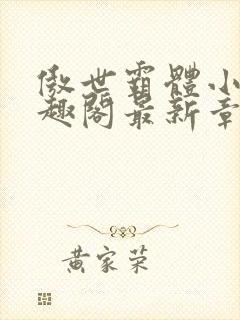 傲世霸體小
趣閣最新章
黃家荣